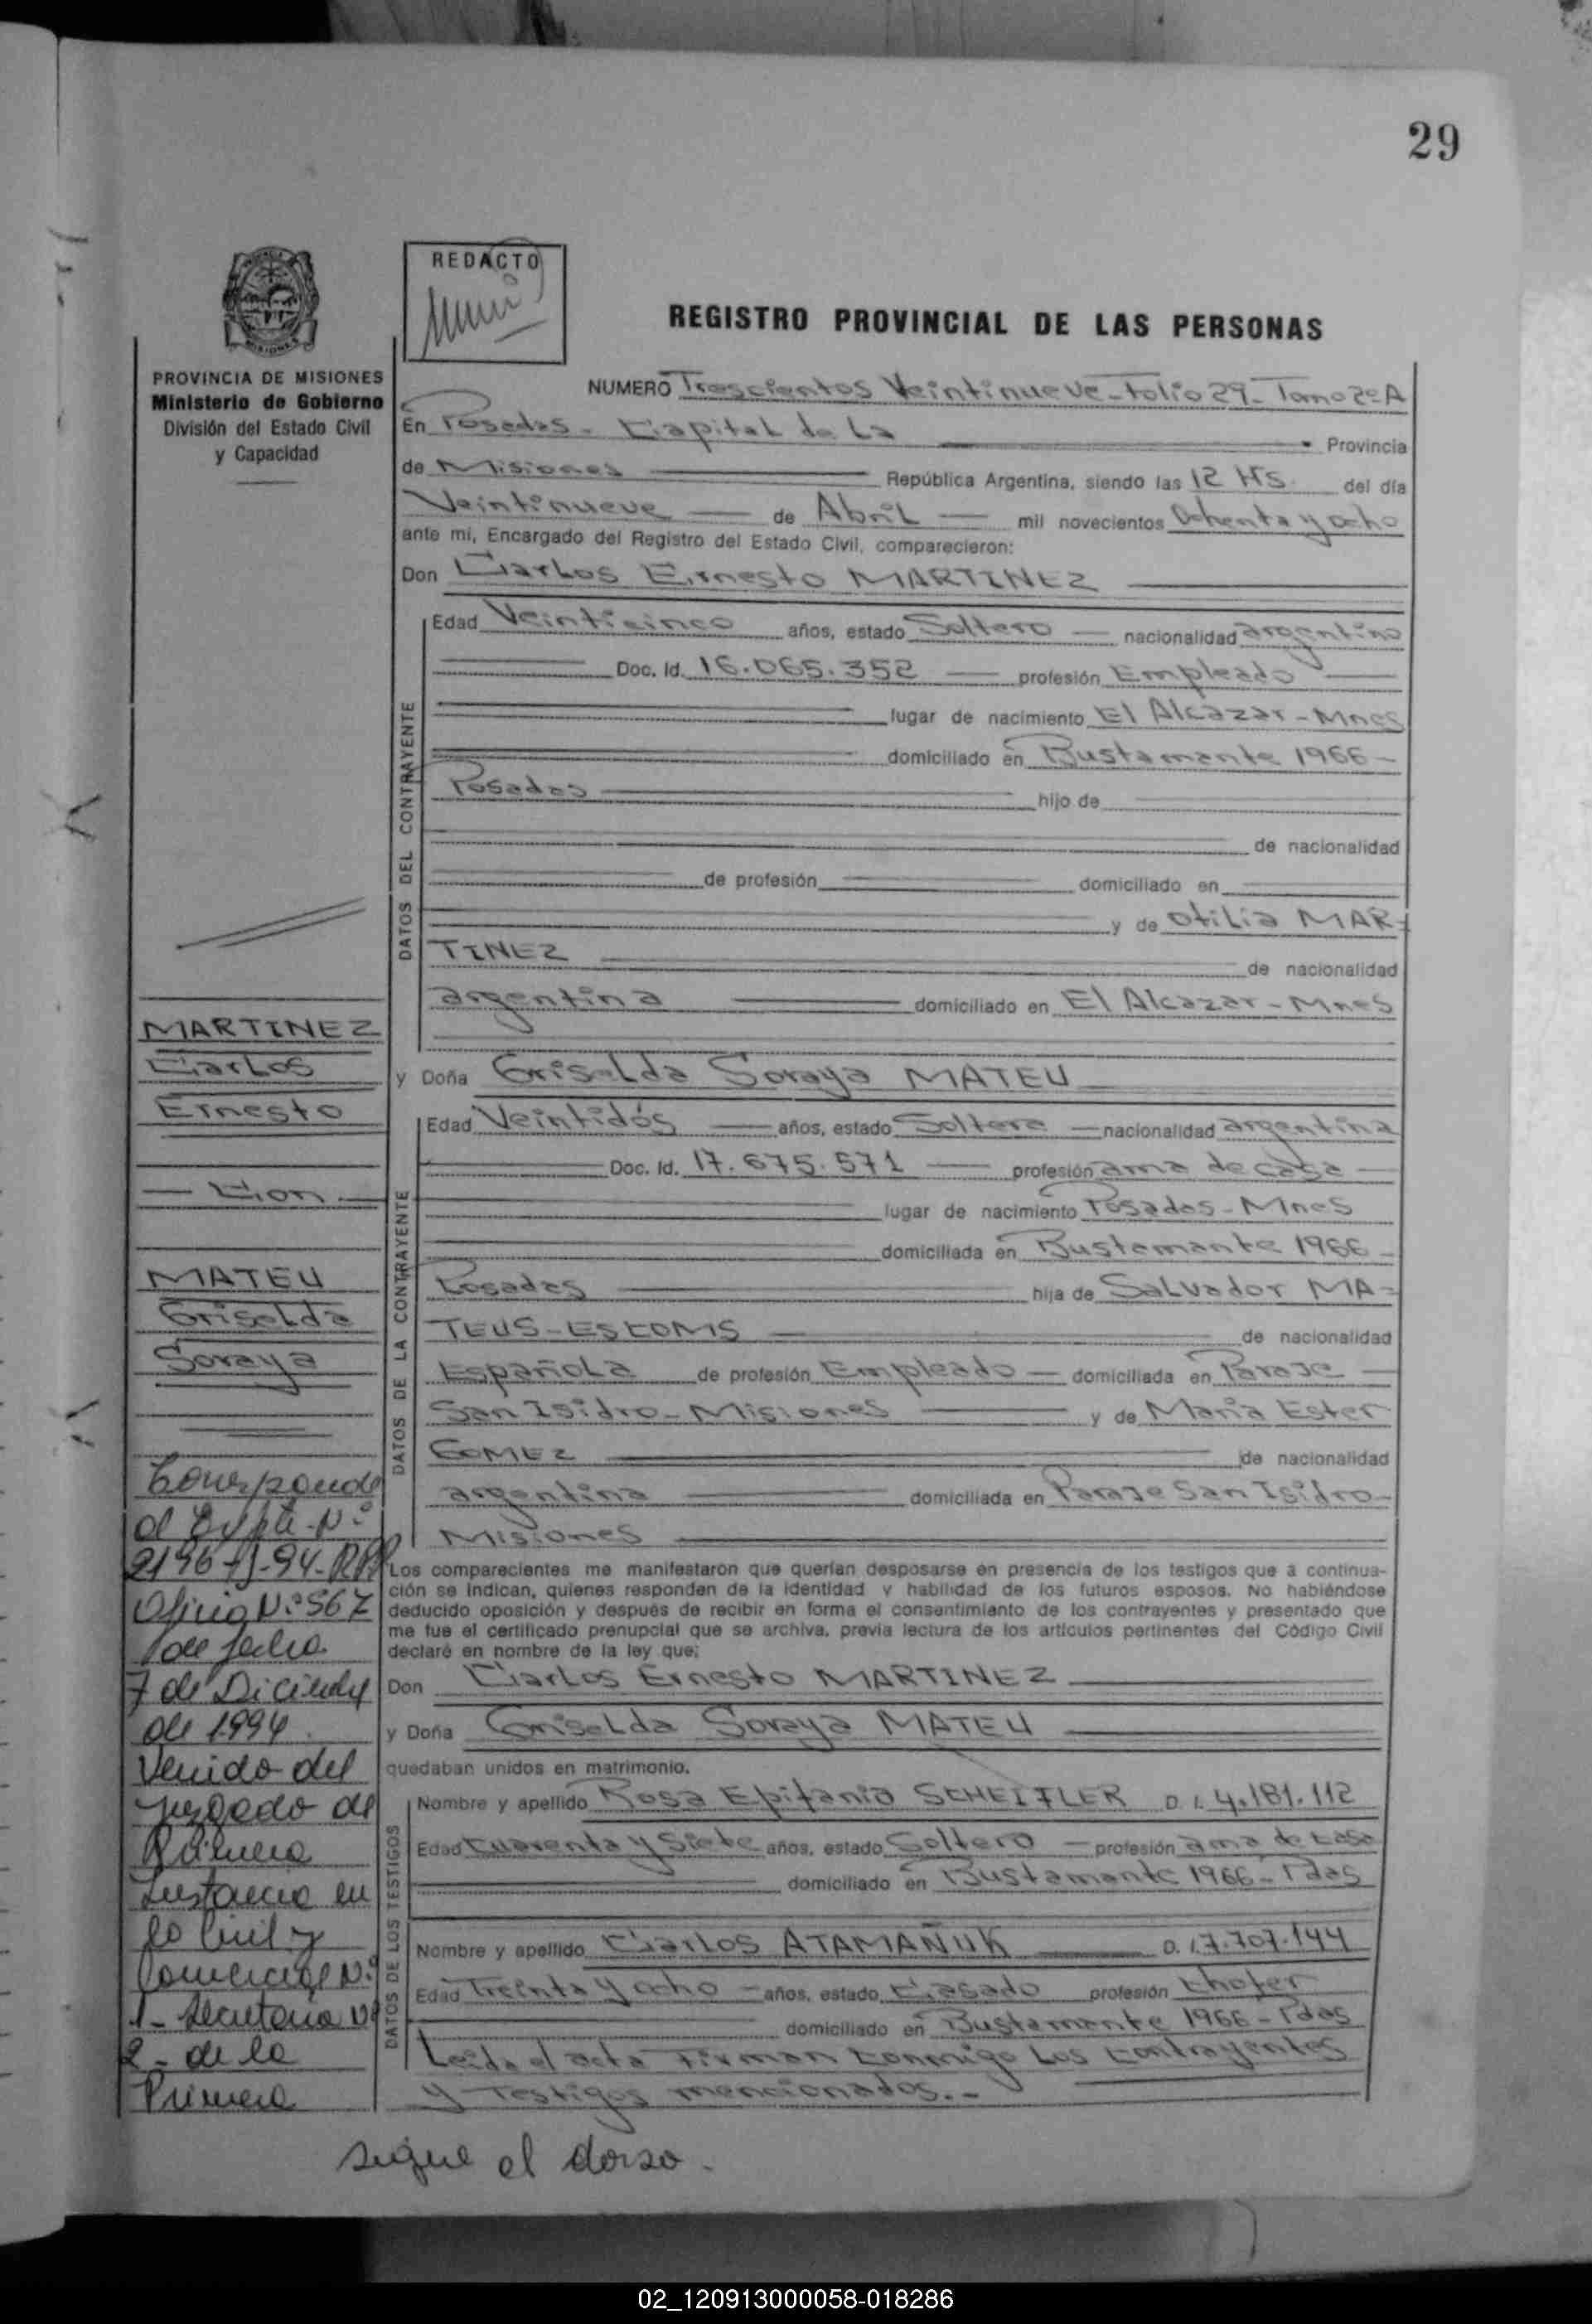 29
REDACTO
REGISTRO PROVINCIAL DE LAS PERSONAS
MISIONES
PROVINCIA DE MISIONES
Ministerio de Gobierno
División del Estado Civil
y Capacidad
NUMERO Trescientos Veintinueve - Folio 29 - Tomo 2º A
En Posadas - Capital de La Provincia
de Misiones República Argentina, siendo las 12 HS. del día
Veintinueve de Abril mil novecientos Ochenta y ocho
ante mí, Encargado del Registro del Estado Civil, comparecieron:
Don Carlos Ernesto MARTINEZ
DATOS DEL CONTRAYENTE
Edad Veinticinco años, estado Soltero nacionalidad argentino
Doc. Id. 16.065.352 profesión Empleado
lugar de nacimiento El Alcazar - Mnes
domiciliado en Bustamante 1966 -
Posadas hijo de
de nacionalidad
de profesión domiciliado en
y de Otilia MAR-
TINEZ de nacionalidad
argentina domiciliado en El Alcazar - Mnes
y Doña Griselda Soraya MATEU
DATOS DE LA CONTRAYENTE
Edad Veintidós años, estado Soltera nacionalidad argentina
Doc. Id. 17.675.571 profesión ama de casa
lugar de nacimiento Posadas - Mnes
domiciliada en Bustamante 1966 -
Posadas hija de Salvador MA-
TEUS - ESCOMS de nacionalidad
Española de profesión Empleado domiciliada en Paraje
San Isidro - Misiones y de Maria Ester
GOMEZ de nacionalidad
argentina domiciliada en Paraje San Isidro -
Misiones
Los comparecientes me manifestaron que querían desposarse en presencia de los testigos que a continua-
ción se indican, quienes responden de la identidad y habilidad de los futuros esposos. No habiéndose
deducido oposición y después de recibir en forma el consentimiento de los contrayentes y presentado que
me fue el certificado prenupcial que se archiva, previa lectura de los artículos pertinentes del Código Civil
declaré en nombre de la ley que;
Don Carlos Ernesto MARTINEZ
y Doña Griselda Soraya MATEU
quedaban unidos en matrimonio.
DATOS DE LOS TESTIGOS
Nombre y apellido Rosa Epifania SCHEIFLER D.I. 4.181.112
Edad Cuarenta y Siete años, estado Soltero profesión ama de casa
domiciliado en Bustamante 1966 - Pdas
Nombre y apellido Carlos ATAMAÑUK D.I 7.707.144
Edad Treinta y ocho años, estado Casado profesión chofer
domiciliado en Bustamante 1966 - Pdas
Leida el acta Firman conmigo Los contrayentes
y Testigos mencionados.-
MARTINEZ
Carlos
Ernesto
Con
MATEU
Griselda
Soraya
Corresponde
al Expte. Nº
Oficio Nº 567
de fecha
7 de Diciembre
de 1994
Venido del
Juzgado de
Primera
Instancia en
lo Civil y
Comercial Nº
1- Secretaria Nº
2- de la
Primera
sigue al dorso.
02_120913000058-018286